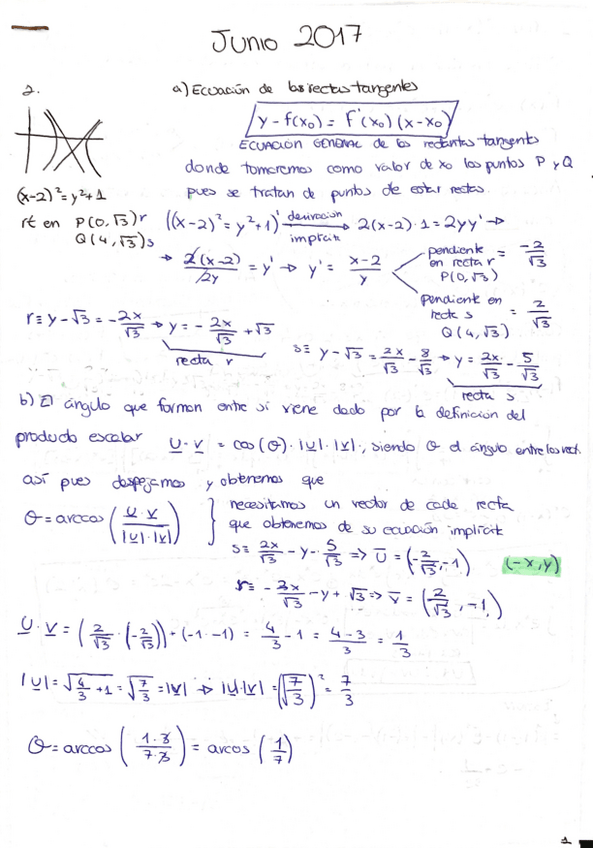 Junio 2017
2.
a) Ecuación de las rectas tangentes
y - f(x₀) = f'(x₀) (x - x₀)
ECUACIÓN GENERAL de las tangents
donde tomaremos como valor de x₀ los puntos P y Q
pues se tratan de puntos de estar rectas.
(x-2)² = y² + 1
rt en P(0, √3) r
Q(4, √3) s
((x-2)² = y² + 1)' derivación implícit → 2(x-2)·1 = 2yy' →
→ 2(x-2)/2y = y' → y' = x-2/y
pendiente en recta r P(0, √3) = -2/√3
pendiente en recta s Q(4, √3) = 2/√3
r ≡ y - √3 = -2x/√3 → y = - 2x/√3 + √3
recta r
s ≡ y - √3 = 2x/√3 - 8/√3 → y = 2x/√3 - 5/√3
recta s
b) El ángulo que forman entre sí viene dado por la definición del
producto escalar U · V = cos(θ) · |U| · |V|, siendo θ el ángulo entre los vect.
así pues despejamos y obtenemos que
θ = arccos (U · V / |U| · |V|)
necesitamos un vector de cada recta
que obtenemos de su ecuación implícit
s ≡ 2x/√3 - y - 5/√3 => U = (-2/√3, -1)
(-x, y)
r ≡ - 2x/√3 - y + √3 => V = (2/√3, -1)
U · V = (2/√3 · (-2/√3)) + (-1 · -1) = 4/3 - 1 = 4-3/3 = 1/3
|U| = √4/3 + 1 = √7/3 = |V| → |U|·|V| = (√7/3)² = 7/3
θ = arccos (1·3/7·3) = arcos (1/7)
1